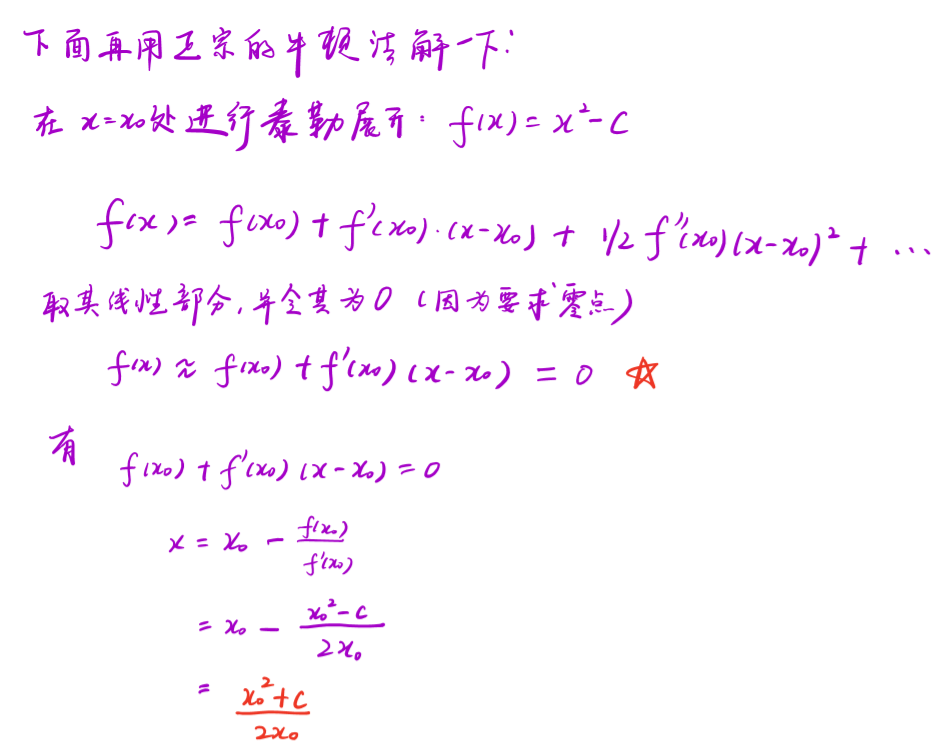 下面再用正宗的牛顿法解一下:
在 x=x₀处进行泰勒展开: f(x) = x² - C
f(x) = f(x₀) + f'(x₀)·(x-x₀) + 1/2 f''(x₀)(x-x₀)² + ...
取其线性部分,并令其为0 (因为要求零点)
f(x) ≈ f(x₀) + f'(x₀)(x-x₀) = 0 ☆
有
f(x₀) + f'(x₀)(x-x₀) = 0
x = x₀ - f(x₀)/f'(x₀)
= x₀ - (x₀²-C)/(2x₀)
= (x₀²+C)/(2x₀)